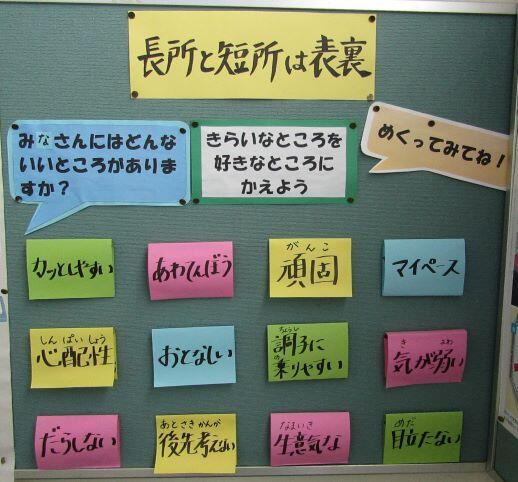 長所と短所は表裏
みなさんにはどんな
いいところがありま
すか?
きらいなところを
好きなところに
かえよう
めくってみてね!
カッとしやすい
あわてんぼう
がんこ
頑固
マイペース
しんぱいしょう
心配性
おとなしい
ちょうし
調子に
の
乗りやすい
き よわ
気が弱い
だらしない
あとさきかんが
後先考えない
なまいき
生意気な
めだ
目立たない